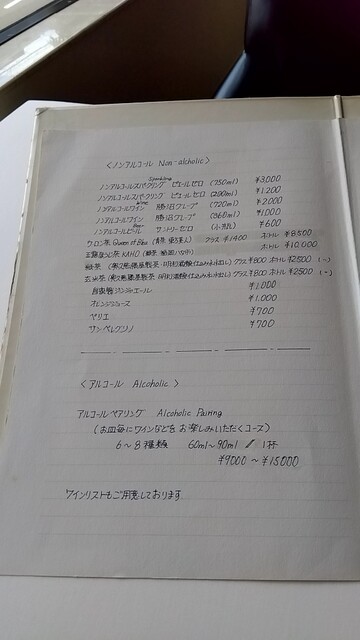 <ノンアルコール Non-alcholic>
Sparkling
ノンアルコールスパークリング ピュールゼロ (750ml) ¥3,000
ノンアルコールスパークリング ピュールゼロ (200ml) ¥1,200
wine
ノンアルコールワイン 勝沼グレープ (720ml) ¥2000
ノンアルコールワイン 勝沼グレープ (360ml) ¥1000
Beer
ノンアルコールビール サントリーゼロ (小瓶) ¥600
サロン茶 Queen of Blue グラス ¥1400 ボトル ¥8500
KAHO ボトル ¥10,000
グラス ¥800 ボトル ¥2500 (〃)
玄米茶 グラス ¥800 ボトル ¥2500 (〃)
自家製ジンジャエール ¥1,000
オレンジジュース ¥1,000
ペリエ ¥700
サンペレグリノ ¥700
<アルコール Alcoholic>
アルコールペアリング Alcoholic Pairing
(お皿毎にワインなどをお楽しみいただくコース)
6~8種類 60ml~90ml / 1杯
¥9000 ~ ¥15000
ワインリストもご用意しております